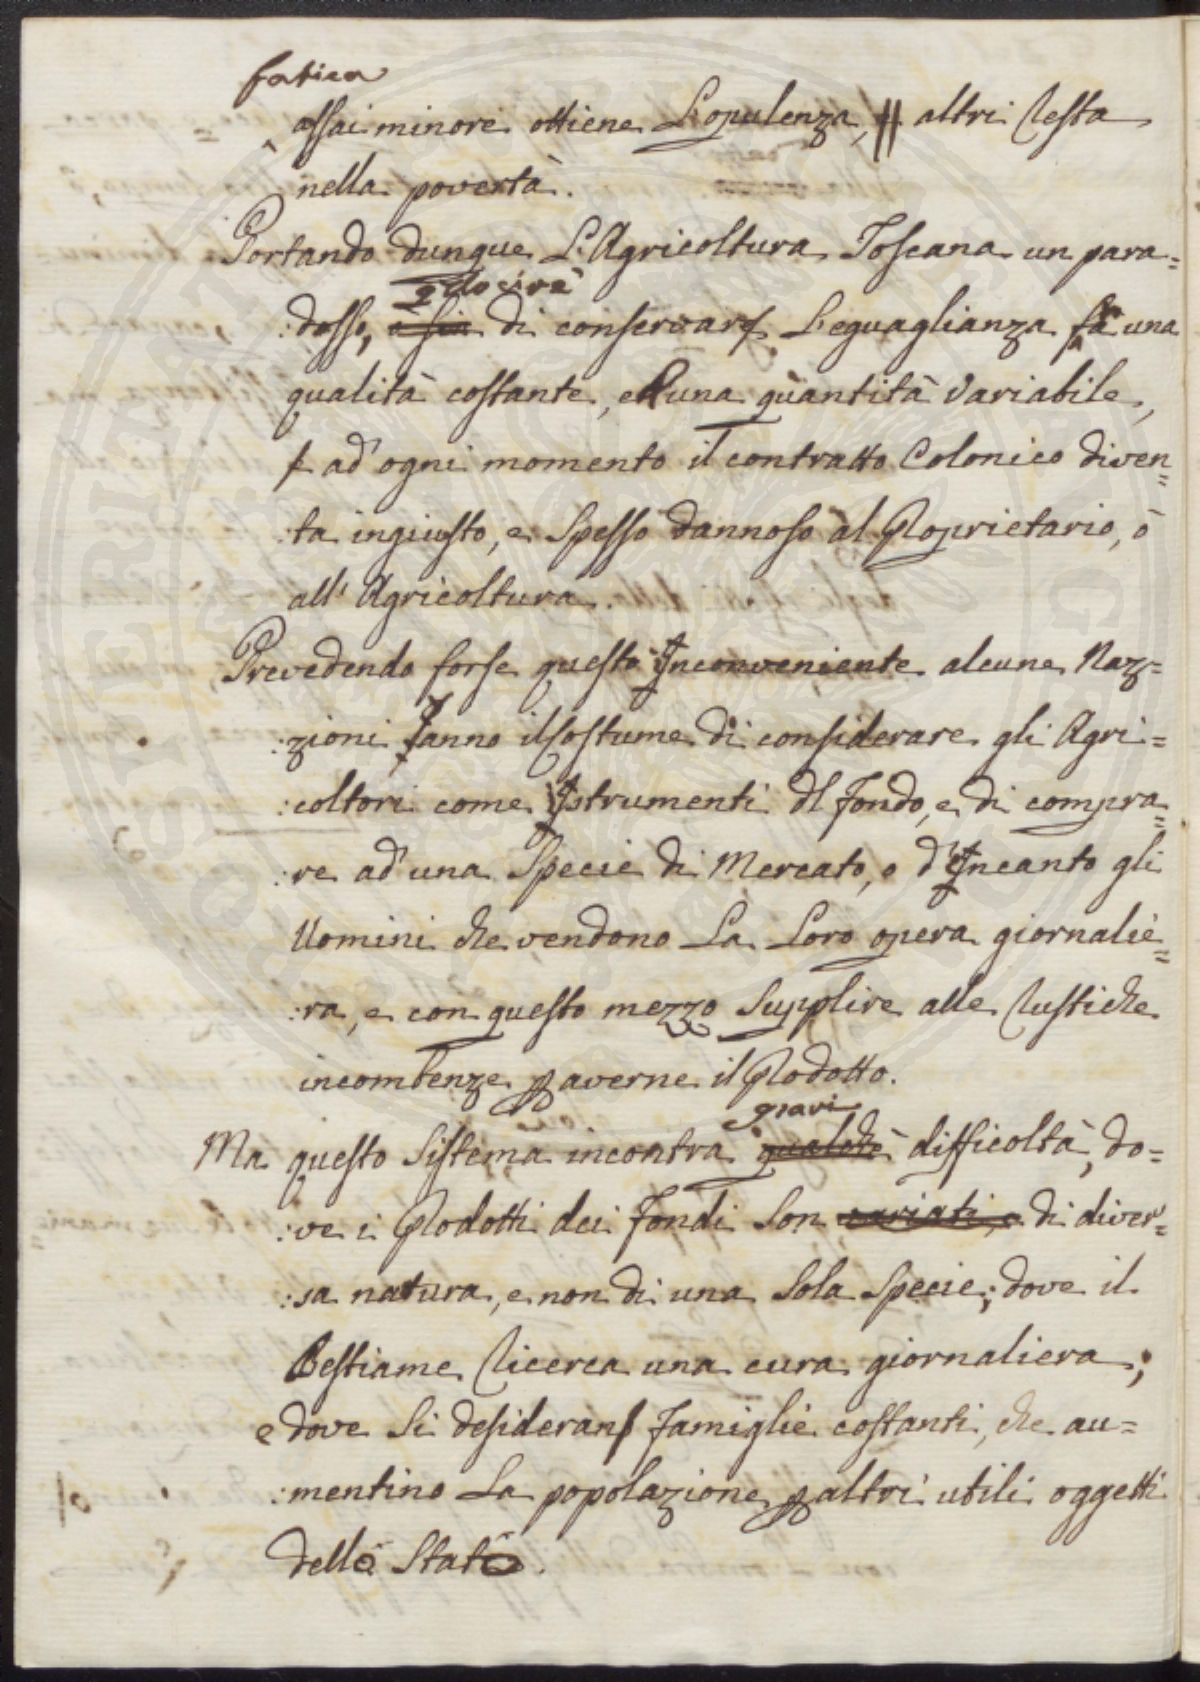 fatica
assai minore ottiene L'opulenza, altri Resta
nella povertà.
Portando dunque L'Agricoltura Toscana un para=
:dosso, o sia di conservare L'eguaglianza fra una
qualità costante, ed una quantità Variabile,
ad' ogni momento il contratto Colonico diven=
:ta ingiusto, e Spesso dannoso al Proprietario, ò
all' Agricoltura.
Prevedendo forse questo Inconveniente alcune Naz=
:zioni Hanno il Costume di considerare gli Agri=
:coltori come Istrumenti del fondo, e di compra=
:re ad' una Specie di Mercato, o d'Incanto gli
Uomini che vendono La Loro opera giornalie=
:ra, e con questo mezzo Supplire alle Rustiche
incombenze p averne il Prodotto.
gravi
Ma questo Sistema incontra qualche difficoltà, do=
:ve i Prodotti dei fondi Son variati, e di diver=
:sa natura, e non di una Sola Specie; dove il
Bestiame Ricerca una cura giornaliera;
e dove Si desideran famiglie costanti, che au=
:mentino La popolazione p altri utili oggetti
dello Stato.